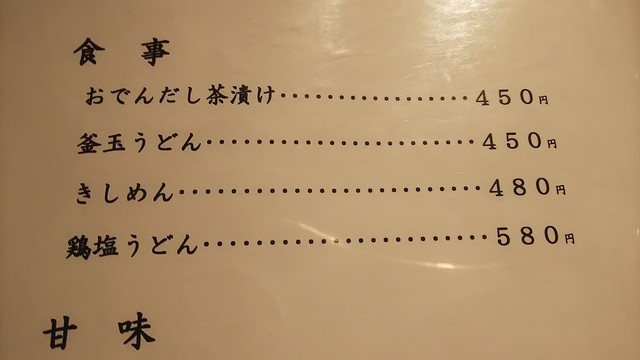 食 事
おでんだし茶漬け・・・・・・・・・・・・・・・・・450円
釜玉うどん・・・・・・・・・・・・・・・・・・・・・・・450円
きしめん・・・・・・・・・・・・・・・・・・・・・・・・・480円
鶏塩うどん・・・・・・・・・・・・・・・・・・・・・・・580円
甘 味